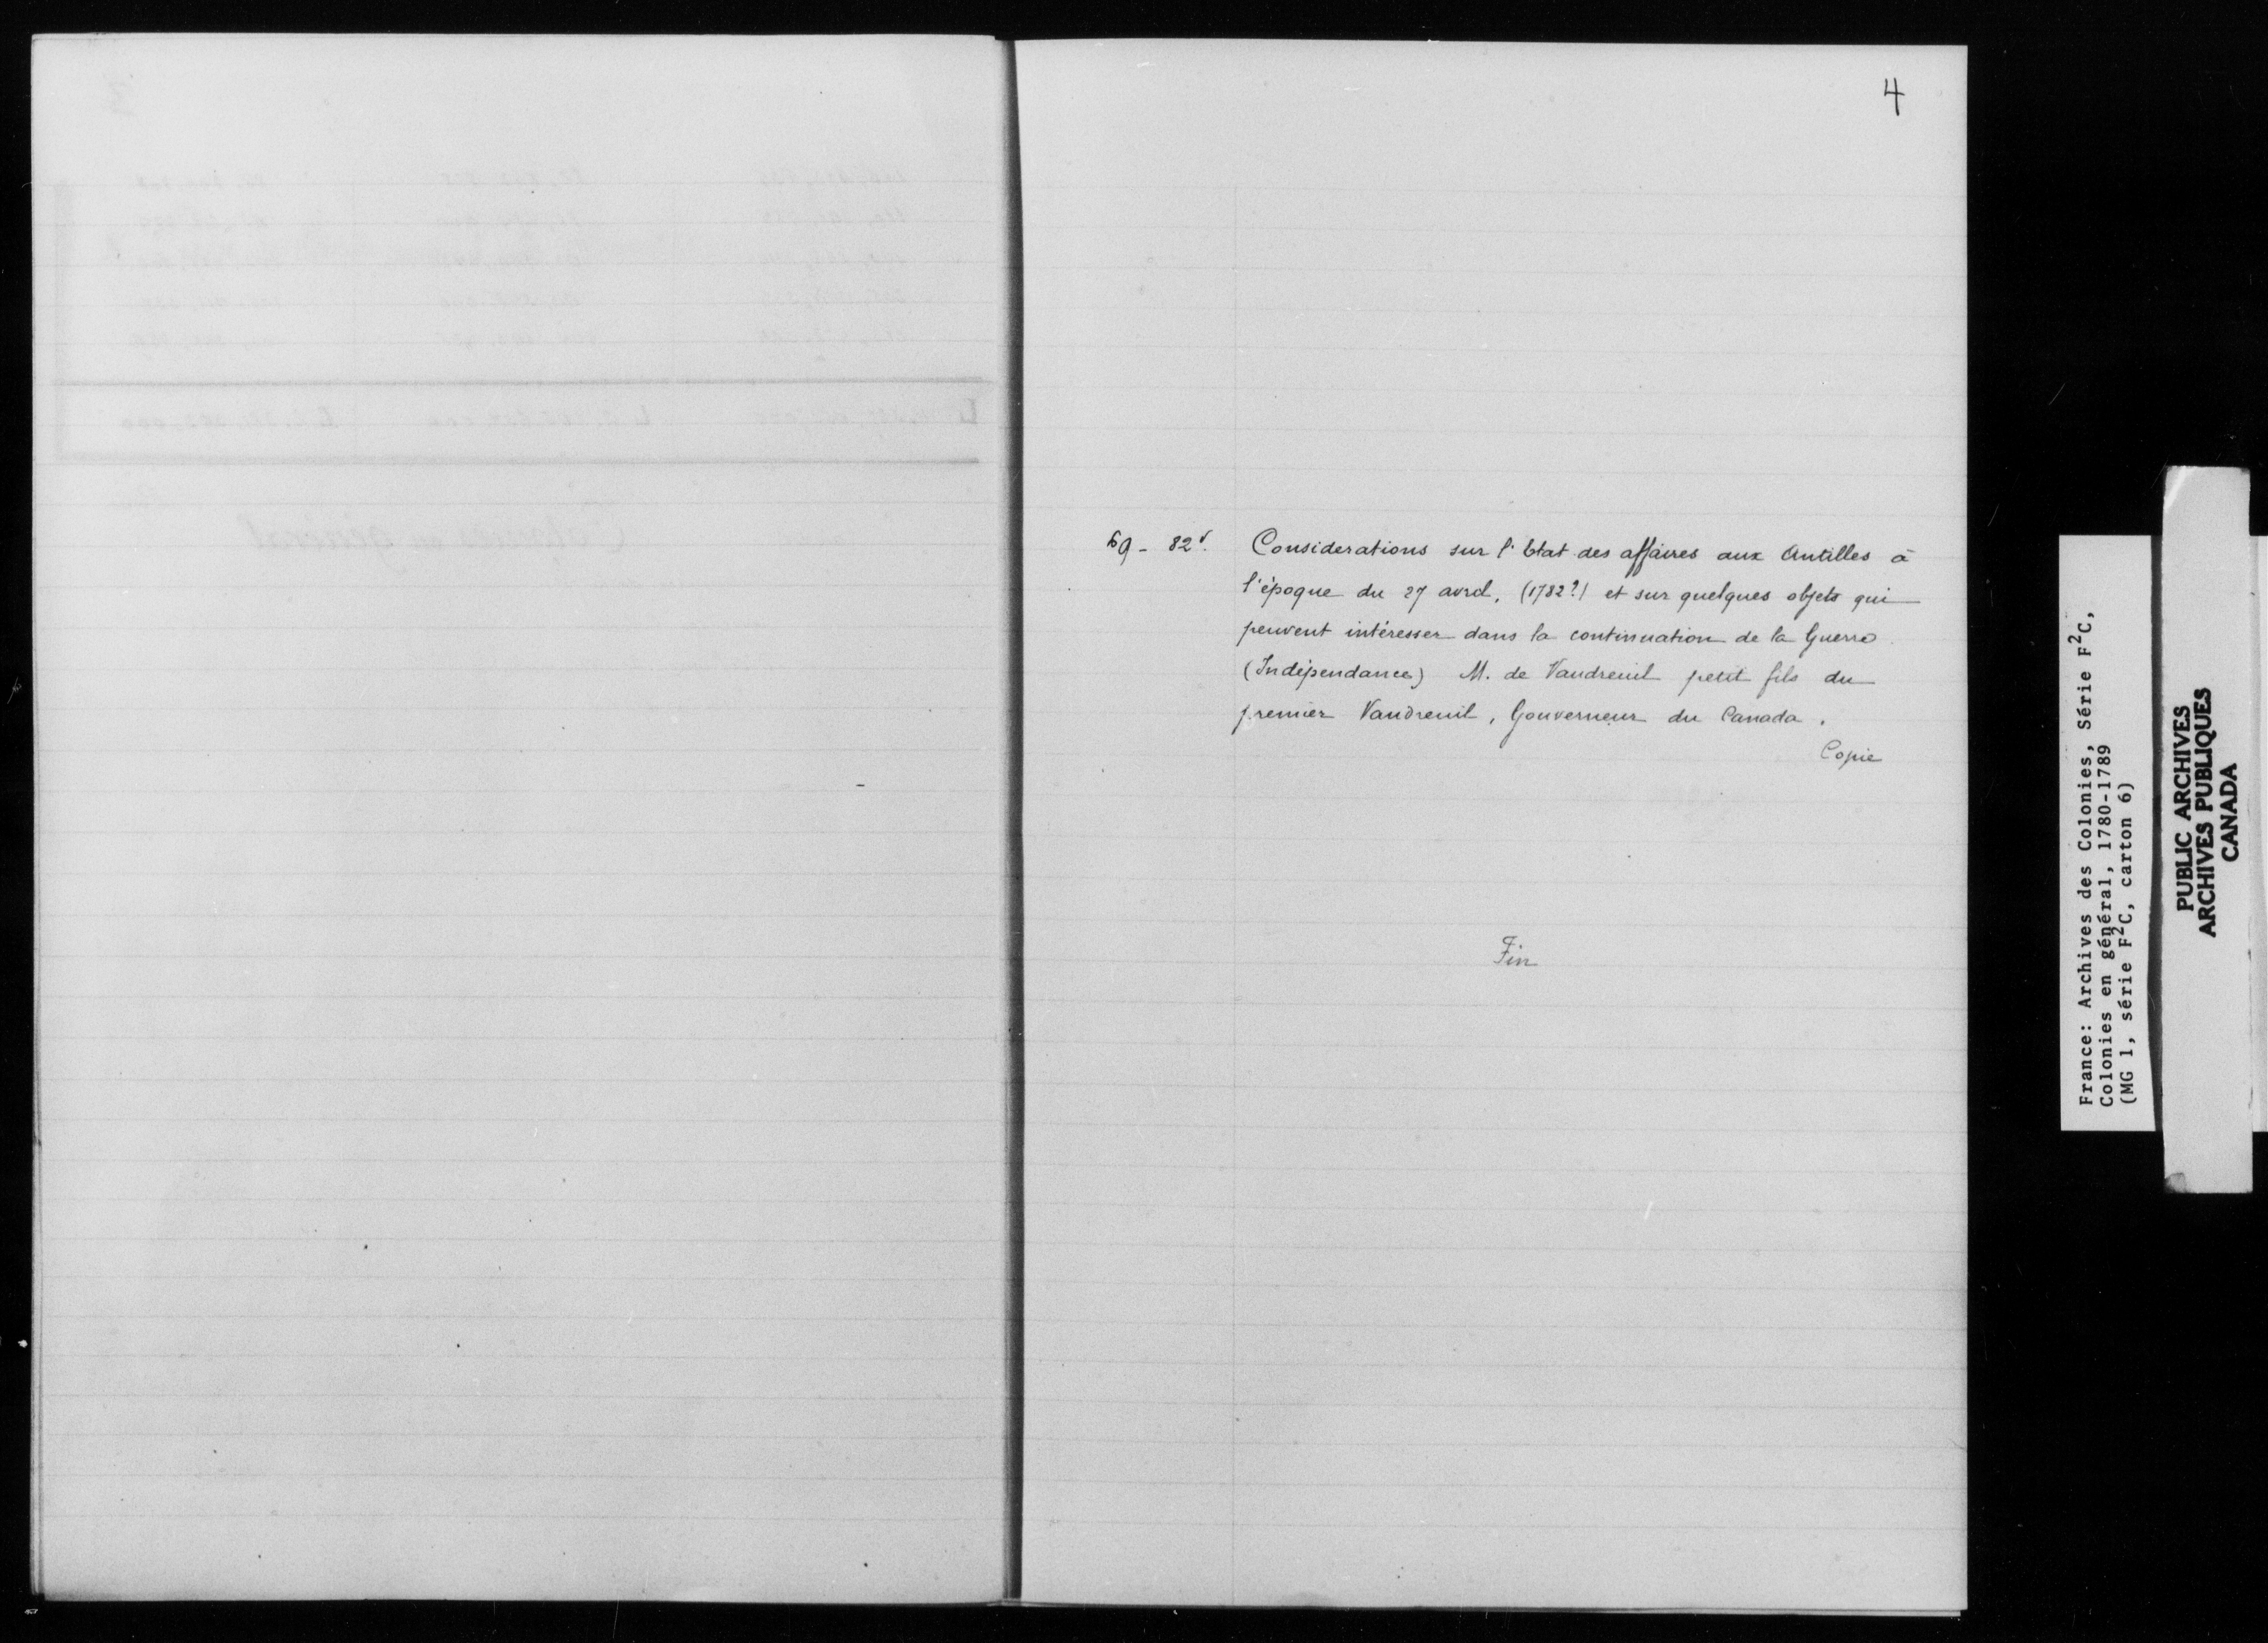 4
69 - 82v. Considerations sur l'Etat des affaires aux Antilles à
l'époque du 27 avril, (1782?) et sur quelques objets qui
peuvent intéresser dans la continuation de la Guerre
(Indépendance) M. de Vaudreuil petit fils du
premier Vaudreuil, Gouverneur du Canada.
Copie
Fin
France: Archives des Colonies, Série F²C,
Colonies en général, 1780-1789
(MG 1, série F²C, carton 6)
PUBLIC ARCHIVES
ARCHIVES PUBLIQUES
CANADA